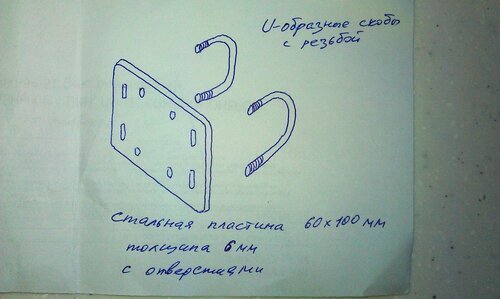 U-образные скобы
с резьбой
Стальная пластина 60х100 мм
толщина 6 мм
с отверстиями